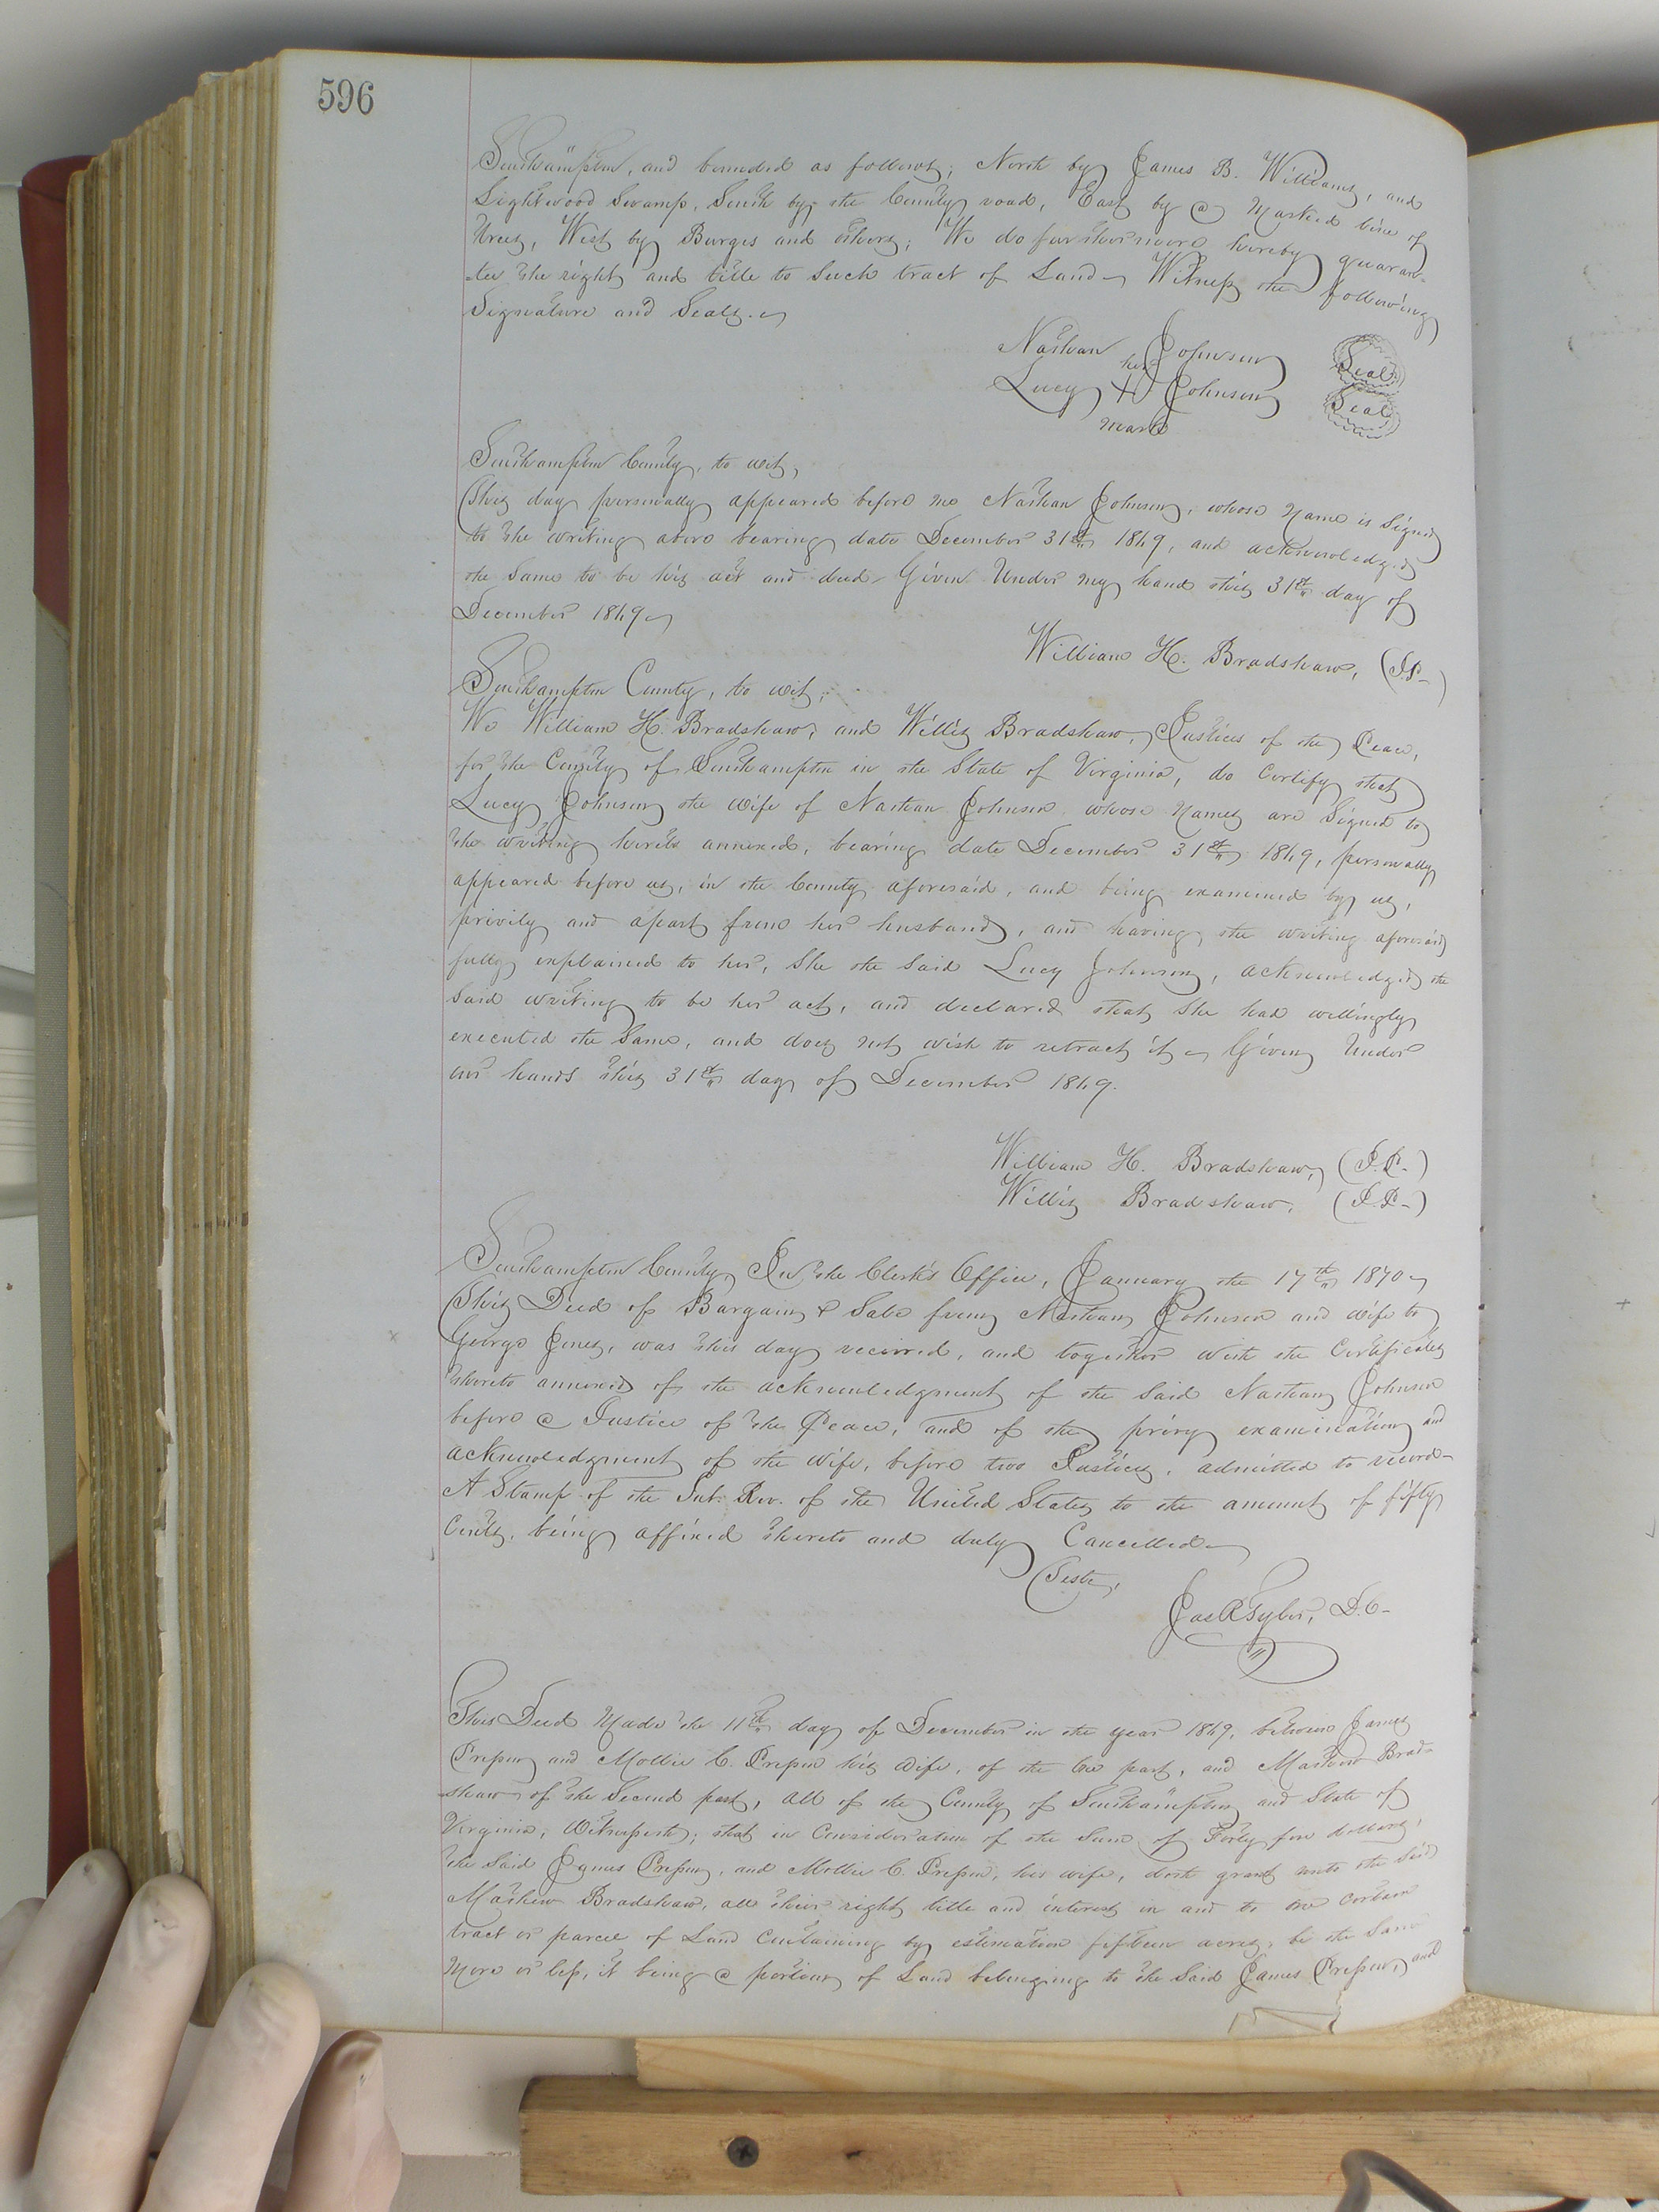 596
Southampton, and bounded as follows; North by James B. Williams, and
Lightwood Swamp, South by the County road, East by a Marked line of
Trees, West by Burges and others; We do furthermore hereby guaran-
-tee the right and title to such tract of Land Witness the following
Signature and Seals.
Nathan Johnson Seal
her
Lucy + Johnson Seal
mark
Southampton County, to wit,
This day personally appeared before me Nathan Johnson, whose Name is Signed
to the writing above bearing date December 31st 1869, and acknowledged
the Same to be his act and deed Given Under my hand this 31st day of
December 1869
William H. Bradshaw, (J.P.)
Southampton County, to wit,
We William H. Bradshaw, and Willis Bradshaw, Justices of the Peace,
for the County of Southampton in the State of Virginia, do Certify that
Lucy Johnson the wife of Nathan Johnson whose Names are Signed to
the writing hereto annexed, bearing date December 31st 1869, personally
appeared before us, in the County aforesaid, and being examined by us,
privily and apart from her husband, and having the writing aforesaid
fully explained to her, She the Said Lucy Johnson, acknowledged the
Said writing to be her act, and declared that She had willingly
executed the Same, and does not wish to retract it Given Under
our hands this 31st day of December 1869.
William H. Bradshaw, (J.P.)
Willis Bradshaw, (J.P.)
Southampton County, In the Clerk's Office, January the 17th 1870
This Deed of Bargain & Sale from Nathan Johnson and wife to
George Jones, was this day received, and together with the Certificates
thereto annexed of the acknowledgment of the Said Nathan Johnson
before a Justice of the Peace, and of the privy examination and
acknowledgment of the Wife, before two Justices, admitted to record
A Stamp of the Int. Rev. of the United States to the amount of fifty
Cents, being affixed thereto and duly Cancelled
Teste,
Jas R Tyler, D.C.
This Deed Made the 11th day of December in the year 1869, between James
Presson and Mollie C. Presson his Wife, of the One part, and Mathew Brad-
-shaw of the Second part, all of the County of Southampton and State of
Virginia, Witnesseth; that in Consideration of the Sum of Forty five dollars,
the Said James Presson, and Mollie C. Presson, his wife, doth grant unto the Said
Mathew Bradshaw, all their right title and interest in and to one certain
tract or parcel of Land Containing by estimation fifteen acres, be the Same
More or less, it being a portion of Land belonging to the Said James Presson, and